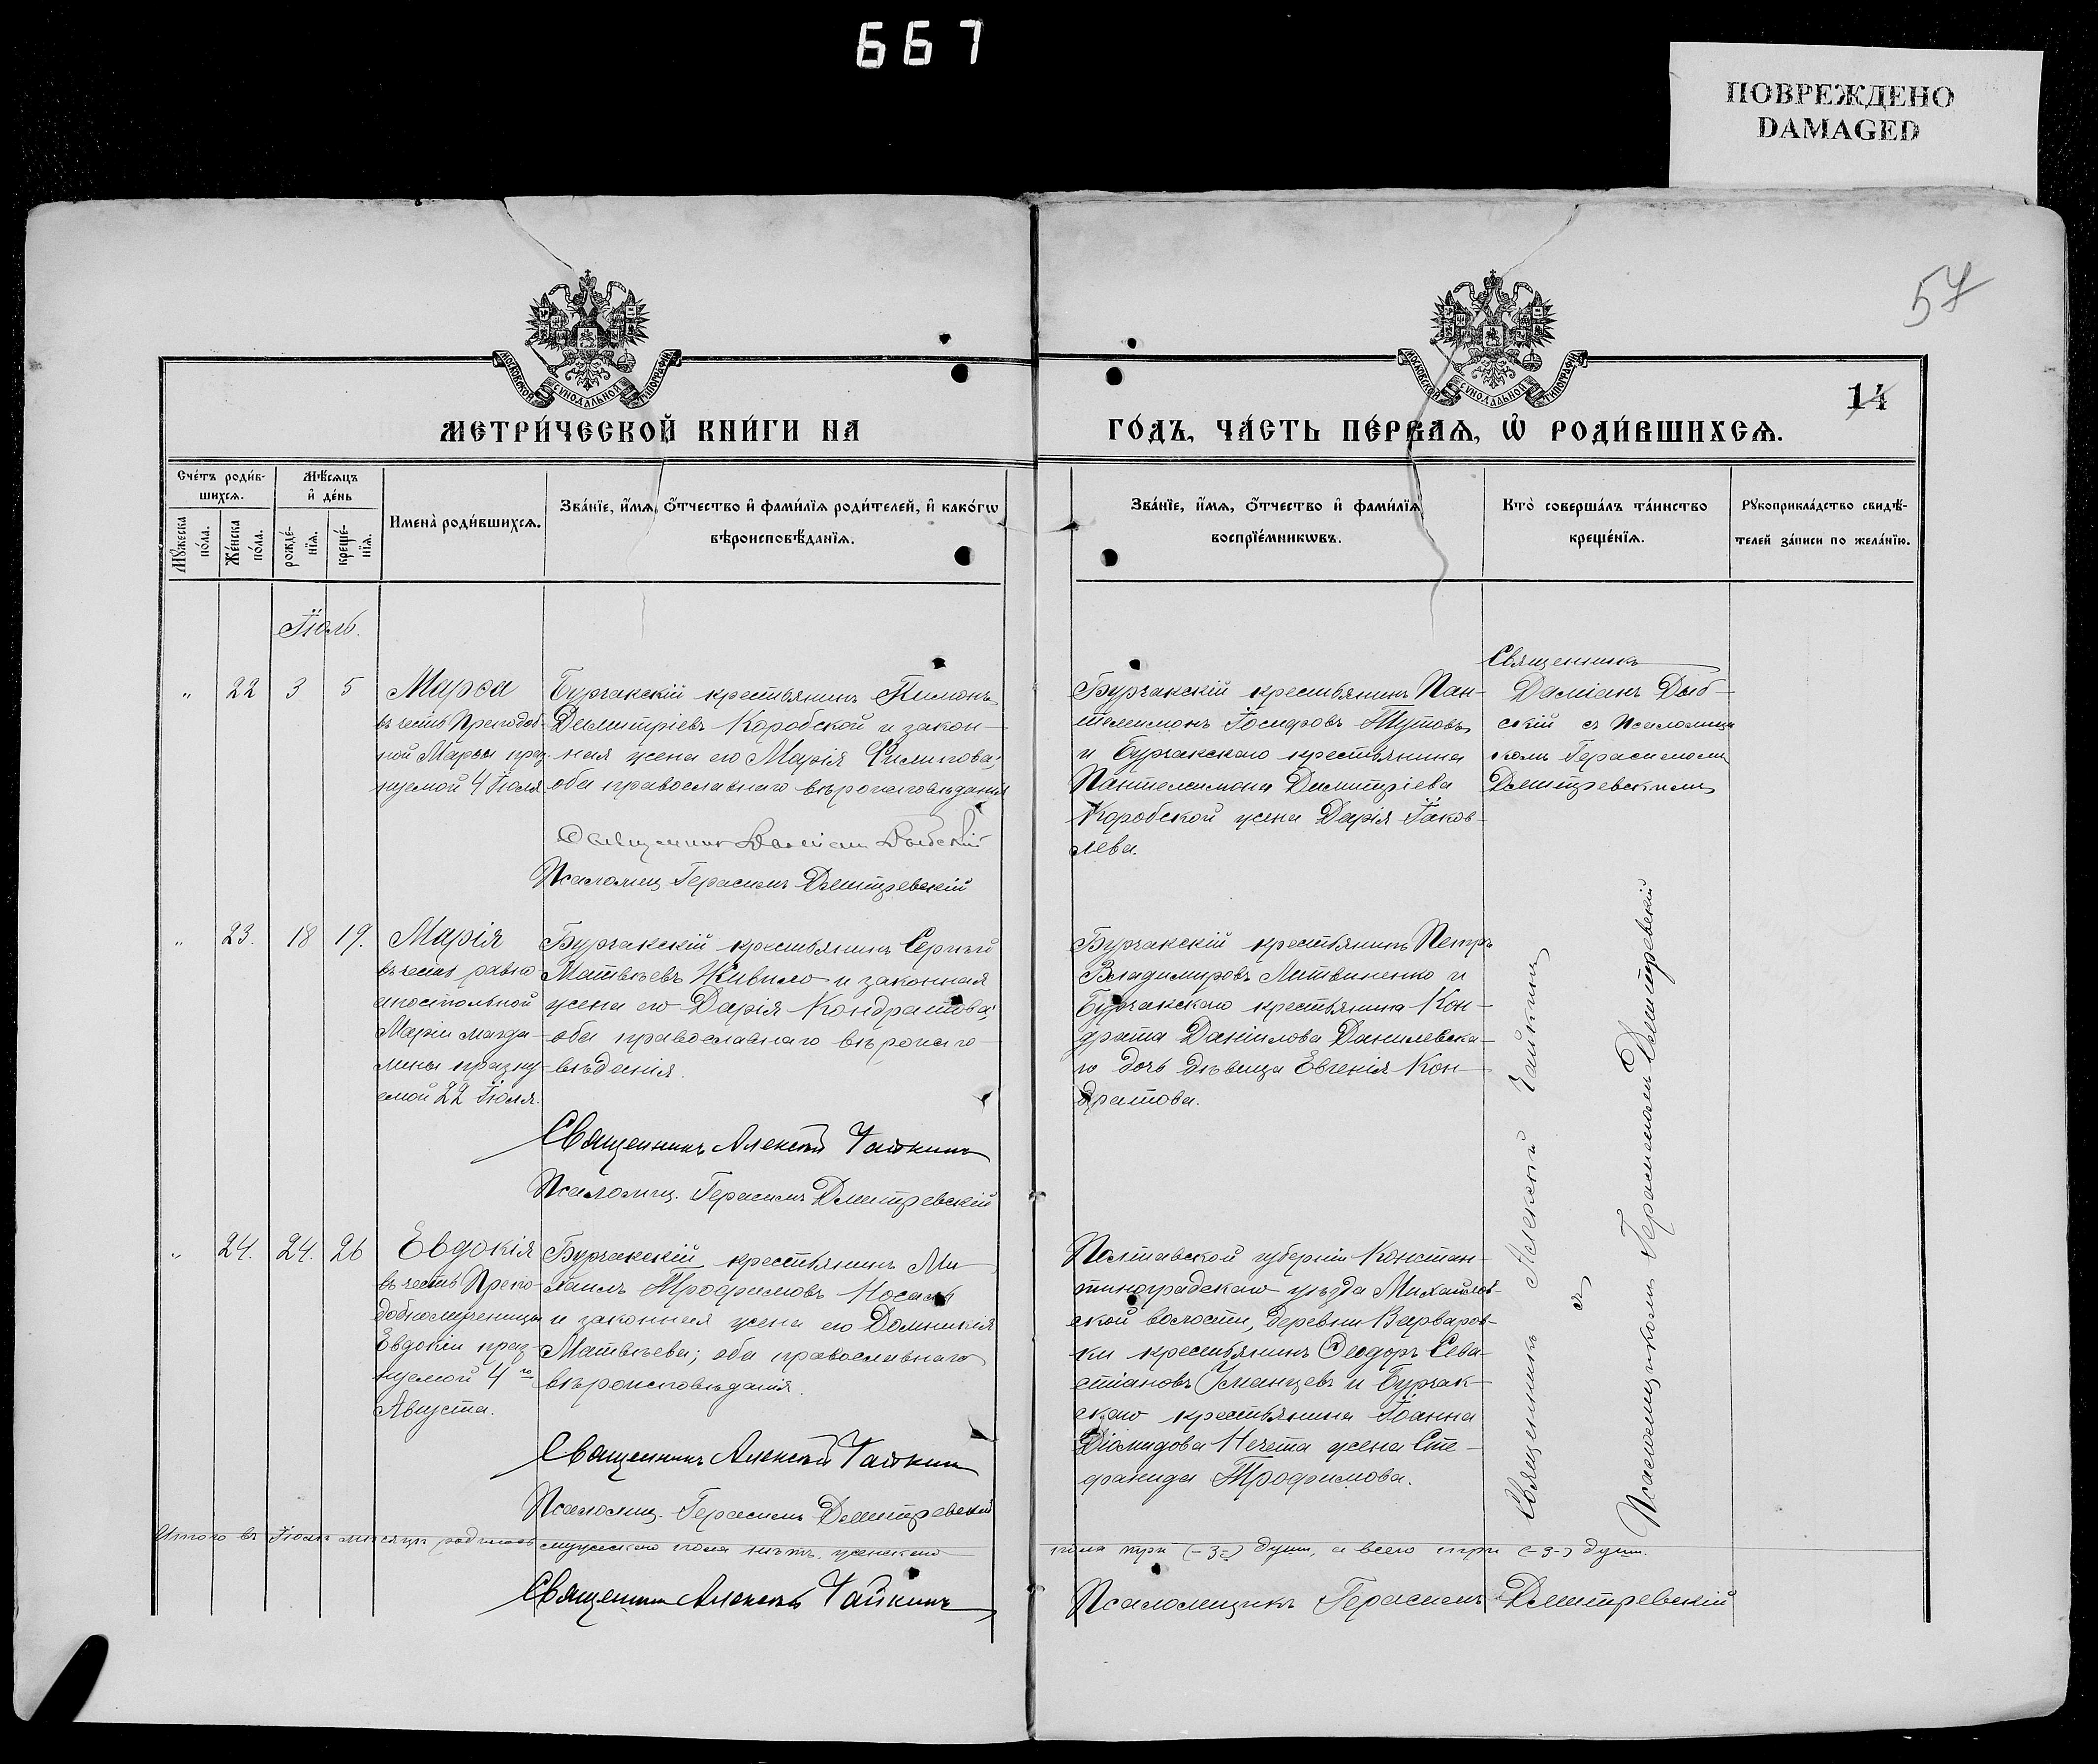 667
ПОВРЕЖДЕНО
DAMAGED
57
14
МОСКОВСКОЙ СѴНОДАЛЬНОЙ ТИПОГРАФІИ
МОСКОВСКОЙ СѴНОДАЛЬНОЙ ТИПОГРАФІИ
МЕТРИ́ЧЕСКОЙ КНИ́ГИ НА
ГО́ДЪ, ЧА́СТЬ ПЕ́РВАѦ, Ѡ҆ РОДИ́ВШИХСѦ.
Сче́тъ роди́в-
шихсѧ.
Мѣ́сѧцъ
и҆ де́нь
Мꙋ́жеска
по́ла.
Же́нска
по́ла.
рожде́-
нїѧ.
креще́-
нїѧ.
Имена̀ роди́вшихсѧ.
Зва́нїе, и҆́мѧ, ѻ҆́тчество и҆ фами́лїѧ роди́телей, и҆ како́гѡ
вѣроисповѣ́данїѧ.
Зва́нїе, и҆́мѧ, ѻ҆́тчество и҆ фами́лїѧ
воспрїе́мникѡвъ.
Кто̀ соверша́лъ та́инство
креще́нїѧ.
Рꙋкоприкла́дство свидѣ́-
телей за́писи по жела́нїю.
Іюль.
" 22 3 5
Марѳа
въ честь Преподоб-
ной Марѳы праз-
нуемой 4 Іюля
Бурчакскій крестьянинъ Пимонъ
Димитріевъ Коробской и закон-
ная жена его Марія Филипова;
оба православнаго вѣроисповѣданія
Священникъ Даміанъ Дыбскій
Псаломщ. Герасимъ Дмитревскій
Бурчакскій крестьянинъ Пан-
телеимонъ Іосифовъ Тутовъ
и Бурчакскаго крестьянина
Пантелеимона Димитріева
Коробской жена Дарія Іаков-
лева.
Священникъ
Даміанъ Дыб-
скій съ псаломщи
комъ Герасимомъ
Дмитревскимъ
" 23. 18 19.
Марія
въ честь равно
апостольной
Маріи магда-
лины празну
емой 22 Іюля.
Бурчакскій крестьянинъ Сергѣй
Матвѣевъ Живило и законная
жена его Дарія Кондратова;
оба православнаго вѣроиспо-
вѣданія.
Священникъ Алексѣй Чайкинъ
Псаломщ. Герасимъ Дмитревскій
Бурчакскій крестьянинъ Петръ
Владимировъ Литвиненко и
Бурчакскаго крестьянина Кон-
драта Даніилова Данилевска-
го дочь дѣвица Евгенія Кон-
дратова.
" 24. 24. 26
Евдокія
въ честь Препо-
добномученицы
Евдокіи праз-
нуемой 4 го
Августа.
Бурчакскій крестьянинъ Ми-
хаилъ Трофимовъ Носаль
и законная жена его Домникія
Матвѣева; оба православнаго
вѣроисповѣданія.
Священникъ Алексѣй Чайкинъ
Псаломщ. Герасимъ Дмитревскій
Полтавской губерніи Констан-
тиноградскаго уѣзда Михайлов-
ской волости, деревни Варваров-
ки крестьянинъ Ѳеодоръ Сева-
стіановъ Уманцевъ и Бурчак-
скаго крестьянина Іоанна
Діомидова Нечета жена Сте-
фанида Трофимова.
Священникъ Алексѣй Чайкинъ
съ
Псаломщикомъ Герасимомъ Дмитревскій
Итого въ Іюлѣ мѣсяцѣ родилось мужескаго пола нѣтъ, женскаго
пола три (-3-) души, а всего три (-3-) души.
Священникъ Алексѣй Чайкинъ
Псаломщикъ Герасимъ Дмитревскій